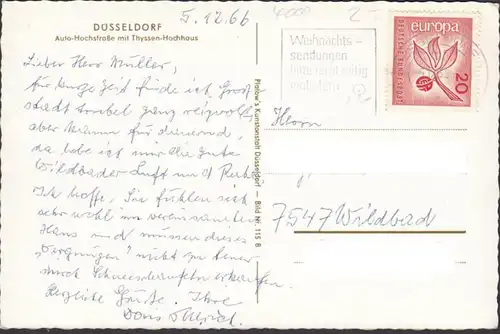 DÜSSELDORF
Auto-Hochstraße mit Thyssen-Hochhaus
5.12.66
Lieber Herr Müller,
für kurze Zeit finde ich Groß
stadttrubel ganz reizvoll,
aber warum für dauernd,
da lobe ich mir die gute
Wildbader Luft und Ruhe
Ich hoffe, Sie fühlen sich
sehr wohl im
Haus und müssen dieses
"Vergnügen" nicht zu teuer
durch erkaufen.
Herzliche Grüße. Ihre
Doris
Plätow's Kunstanstalt Düsseldorf - Bild Nr. 115 B
2-
Weihnachts-
sendungen
bitte rechtzeitig
einliefern
europa
DEUTSCHE BUNDESPOST
20
Herrn
7547 Wildbad